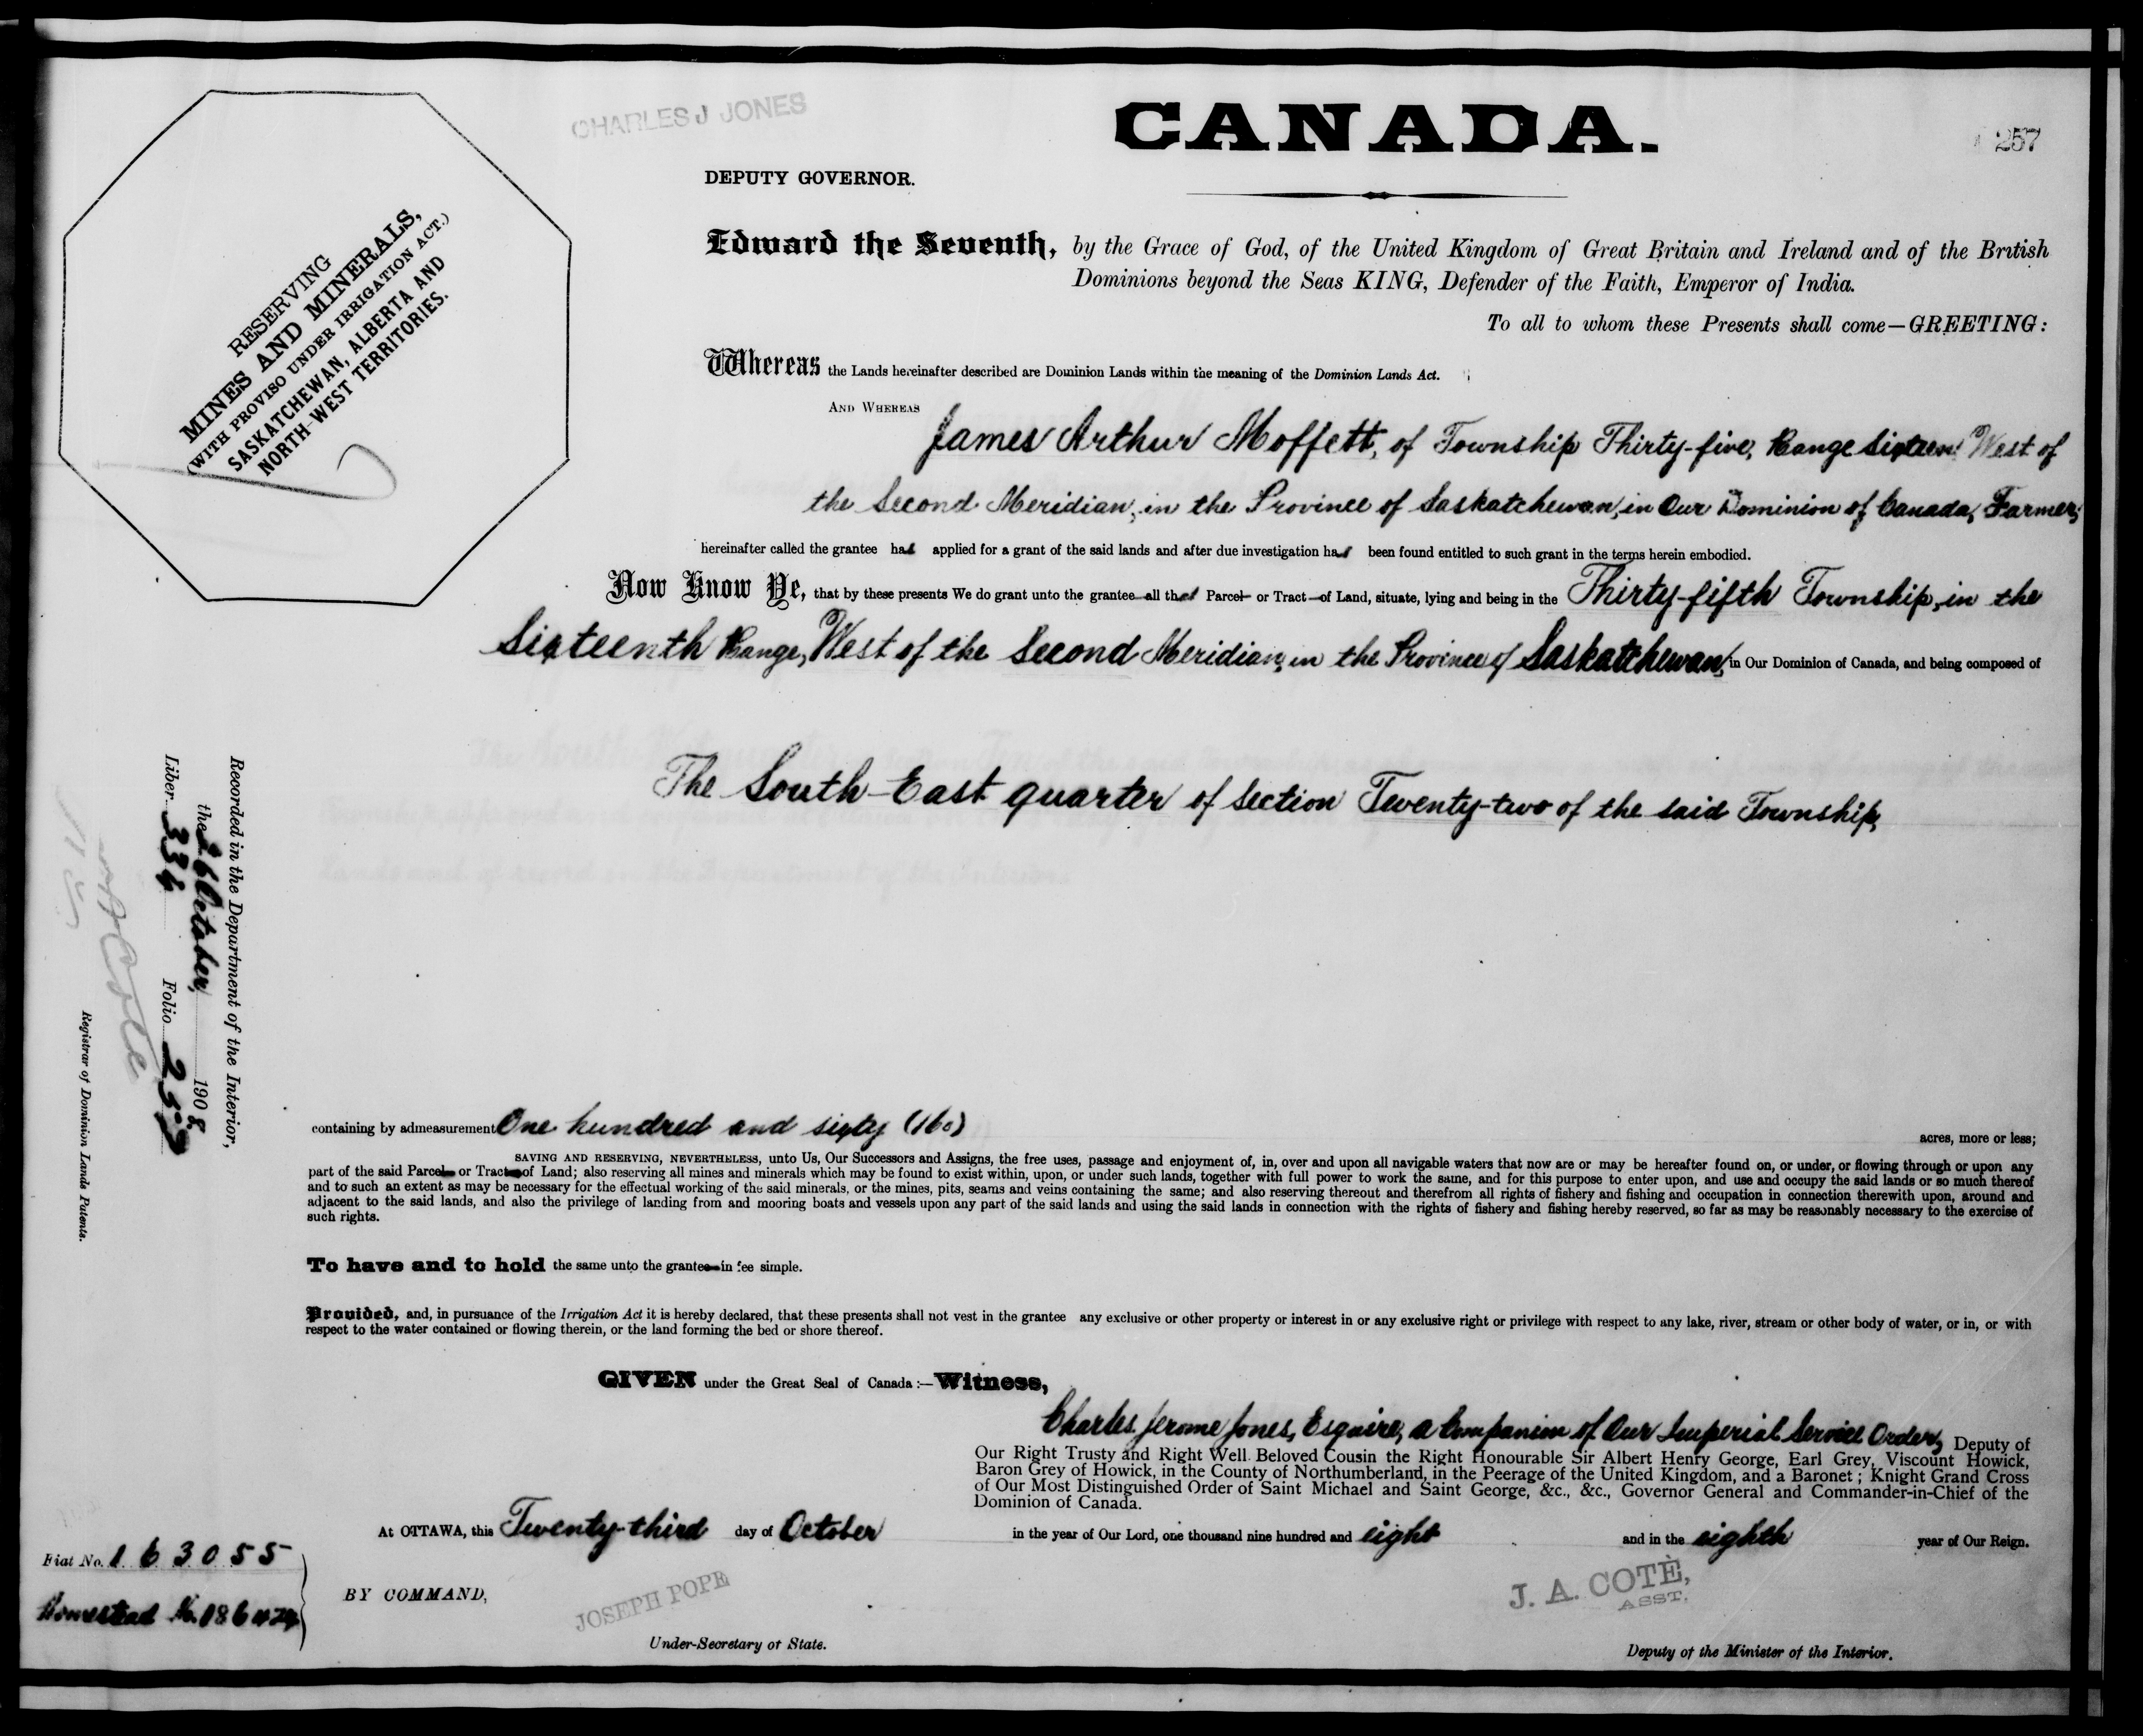 CHARLES J JONES
CANADA.
257
DEPUTY GOVERNOR.
RESERVING
MINES AND MINERALS,
(WITH PROVISO UNDER IRRIGATION ACT.)
SASKATCHEWAN, ALBERTA AND
NORTH-WEST TERRITORIES.
Edward the Seventh, by the Grace of God, of the United Kingdom of Great Britain and Ireland and of the British
Dominions beyond the Seas KING, Defender of the Faith, Emperor of India.
To all to whom these Presents shall come—GREETING:
Whereas the Lands hereinafter described are Dominion Lands within the meaning of the Dominion Lands Act.
AND WHEREAS
James Arthur Moffett, of Township Thirty-five, Range Sixteen West of
the Second Meridian, in the Province of Saskatchewan, in Our Dominion of Canada, Farmer,
hereinafter called the grantee has applied for a grant of the said lands and after due investigation has been found entitled to such grant in the terms herein embodied.
Now Know Ye, that by these presents We do grant unto the grantee all that Parcel or Tract of Land, situate, lying and being in the Thirty-fifth Township, in the
Sixteenth Range, West of the Second Meridian, in the Province of Saskatchewan, in Our Dominion of Canada, and being composed of
The South-East quarter of Section Twenty-two of the said Township,
Recorded in the Department of the Interior,
the 26 October, 1908
Liber 336 Folio 257
Registrar of Dominion Lands Patents.
containing by admeasurement One hundred and sixty (160) acres, more or less;
SAVING AND RESERVING, NEVERTHELESS, unto Us, Our Successors and Assigns, the free uses, passage and enjoyment of, in, over and upon all navigable waters that now are or may be hereafter found on, or under, or flowing through or upon any
part of the said Parcel or Tract of Land; also reserving all mines and minerals which may be found to exist within, upon, or under such lands, together with full power to work the same, and for this purpose to enter upon, and use and occupy the said lands or so much thereof
and to such an extent as may be necessary for the effectual working of the said minerals, or the mines, pits, seams and veins containing the same; and also reserving thereout and therefrom all rights of fishery and fishing and occupation in connection therewith upon, around and
adjacent to the said lands, and also the privilege of landing from and mooring boats and vessels upon any part of the said lands and using the said lands in connection with the rights of fishery and fishing hereby reserved, so far as may be reasonably necessary to the exercise of
such rights.
To have and to hold the same unto the grantee in fee simple.
Provided, and, in pursuance of the Irrigation Act it is hereby declared, that these presents shall not vest in the grantee any exclusive or other property or interest in or any exclusive right or privilege with respect to any lake, river, stream or other body of water, or in, or with
respect to the water contained or flowing therein, or the land forming the bed or shore thereof.
GIVEN under the Great Seal of Canada:—Witness,
Charles Jerome Jones, Esquire, a Companion of Our Imperial Service Order, Deputy of
Our Right Trusty and Right Well Beloved Cousin the Right Honourable Sir Albert Henry George, Earl Grey, Viscount Howick,
Baron Grey of Howick, in the County of Northumberland, in the Peerage of the United Kingdom, and a Baronet; Knight Grand Cross
of Our Most Distinguished Order of Saint Michael and Saint George, &c., &c., Governor General and Commander-in-Chief of the
Dominion of Canada.
At OTTAWA, this Twenty-third day of October in the year of Our Lord, one thousand nine hundred and eight and in the eighth year of Our Reign.
Fiat No. 163055
Homestead No. 186424
BY COMMAND,
JOSEPH POPE
Under-Secretary of State.
J. A. COTÈ,
ASST.
Deputy of the Minister of the Interior.